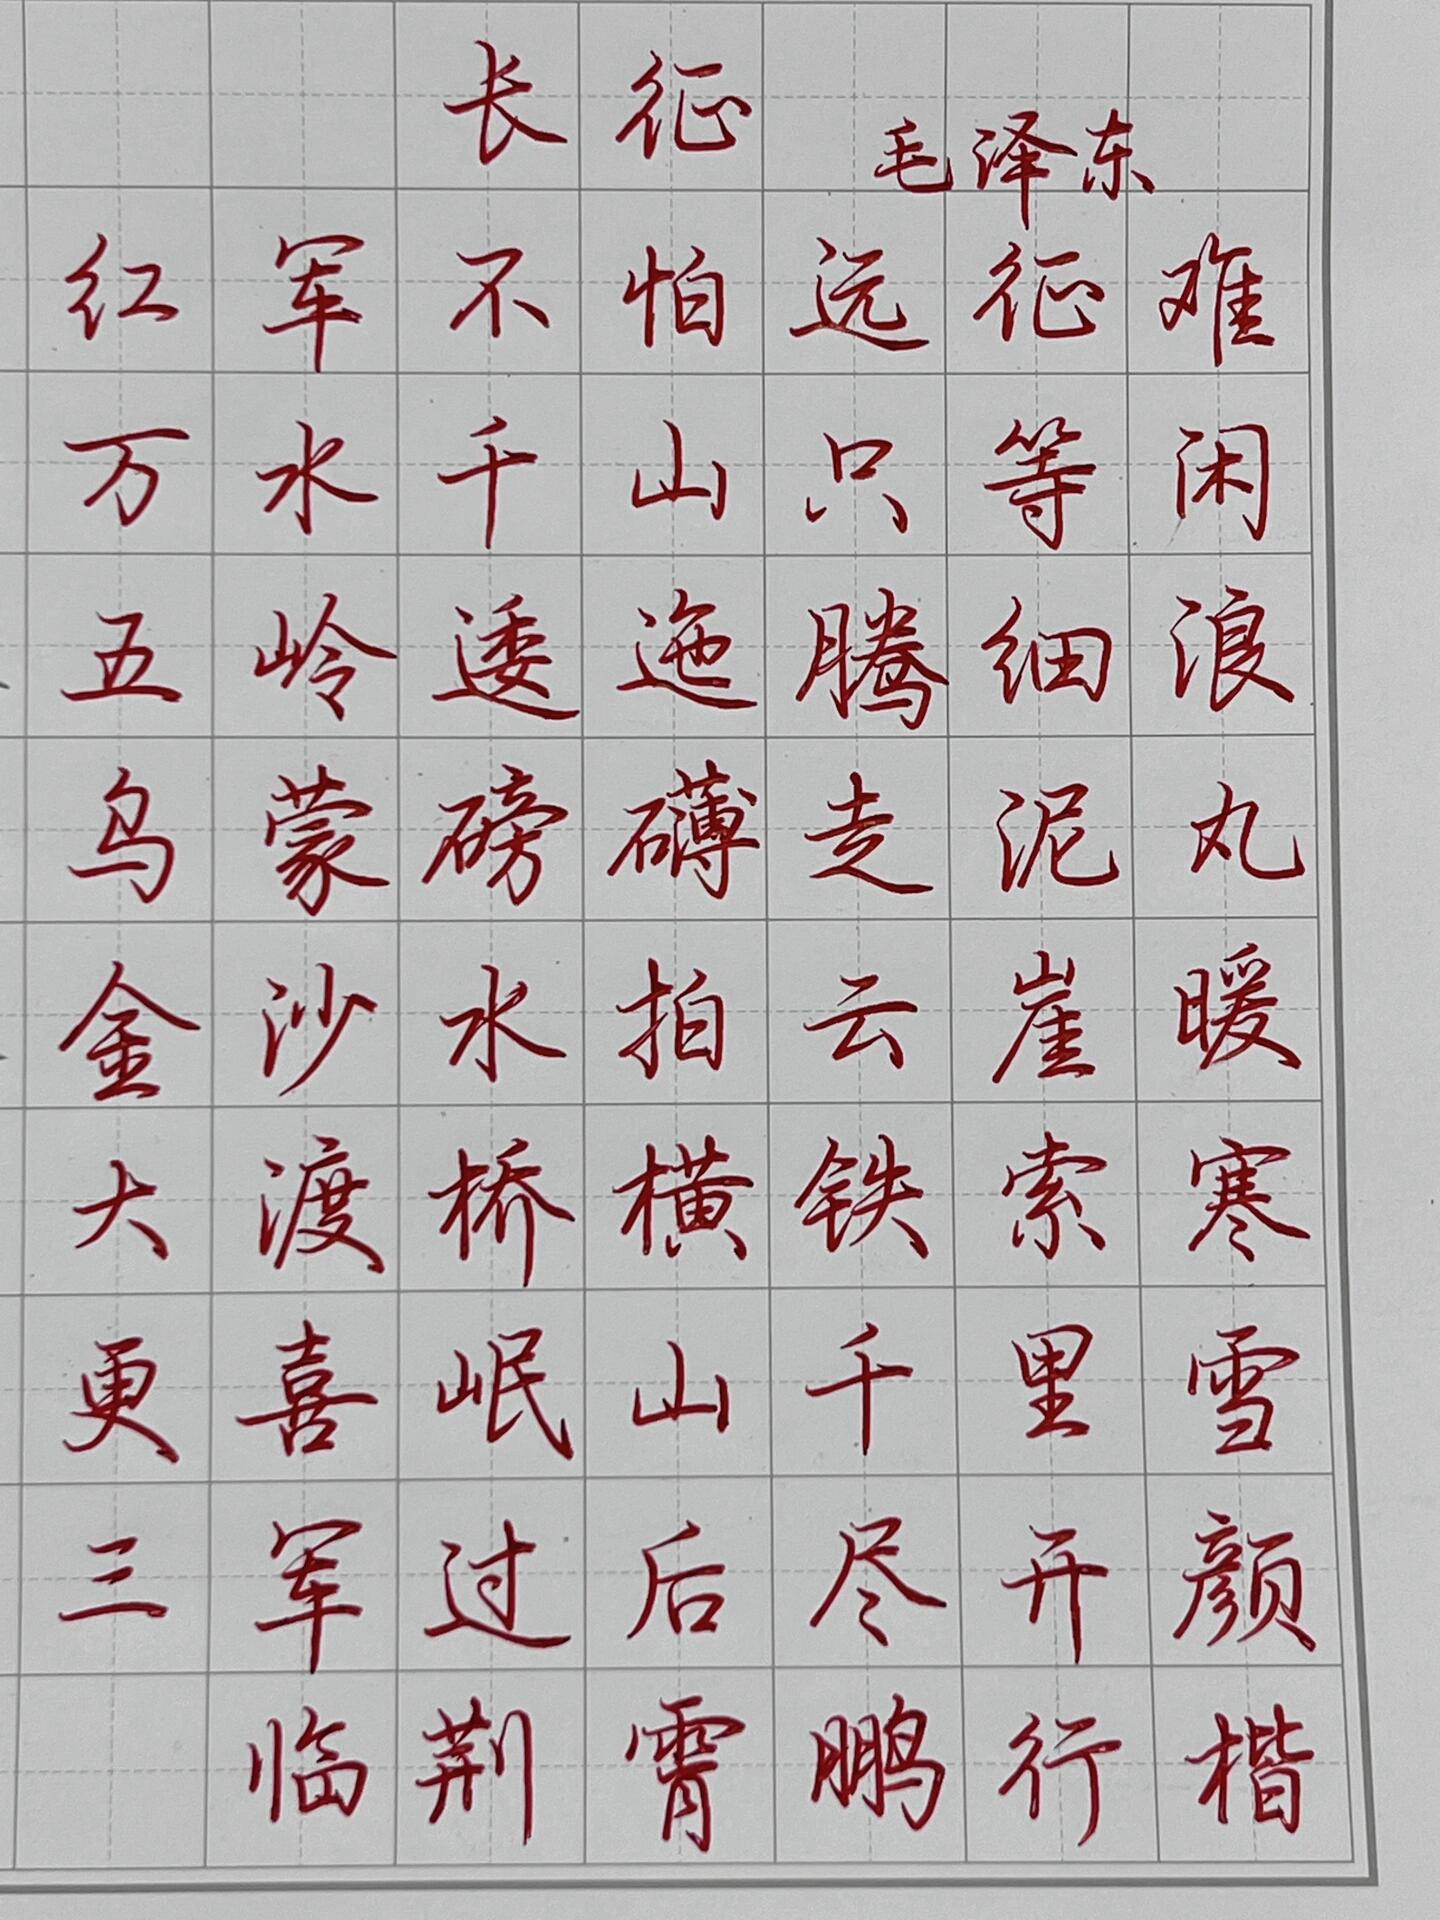 长征
毛泽东
红军不怕远征难
万水千山只等闲
五岭逶迤腾细浪
乌蒙磅礴走泥丸
金沙水拍云崖暖
大渡桥横铁索寒
更喜岷山千里雪
三军过后尽开颜
临荆霄鹏行楷